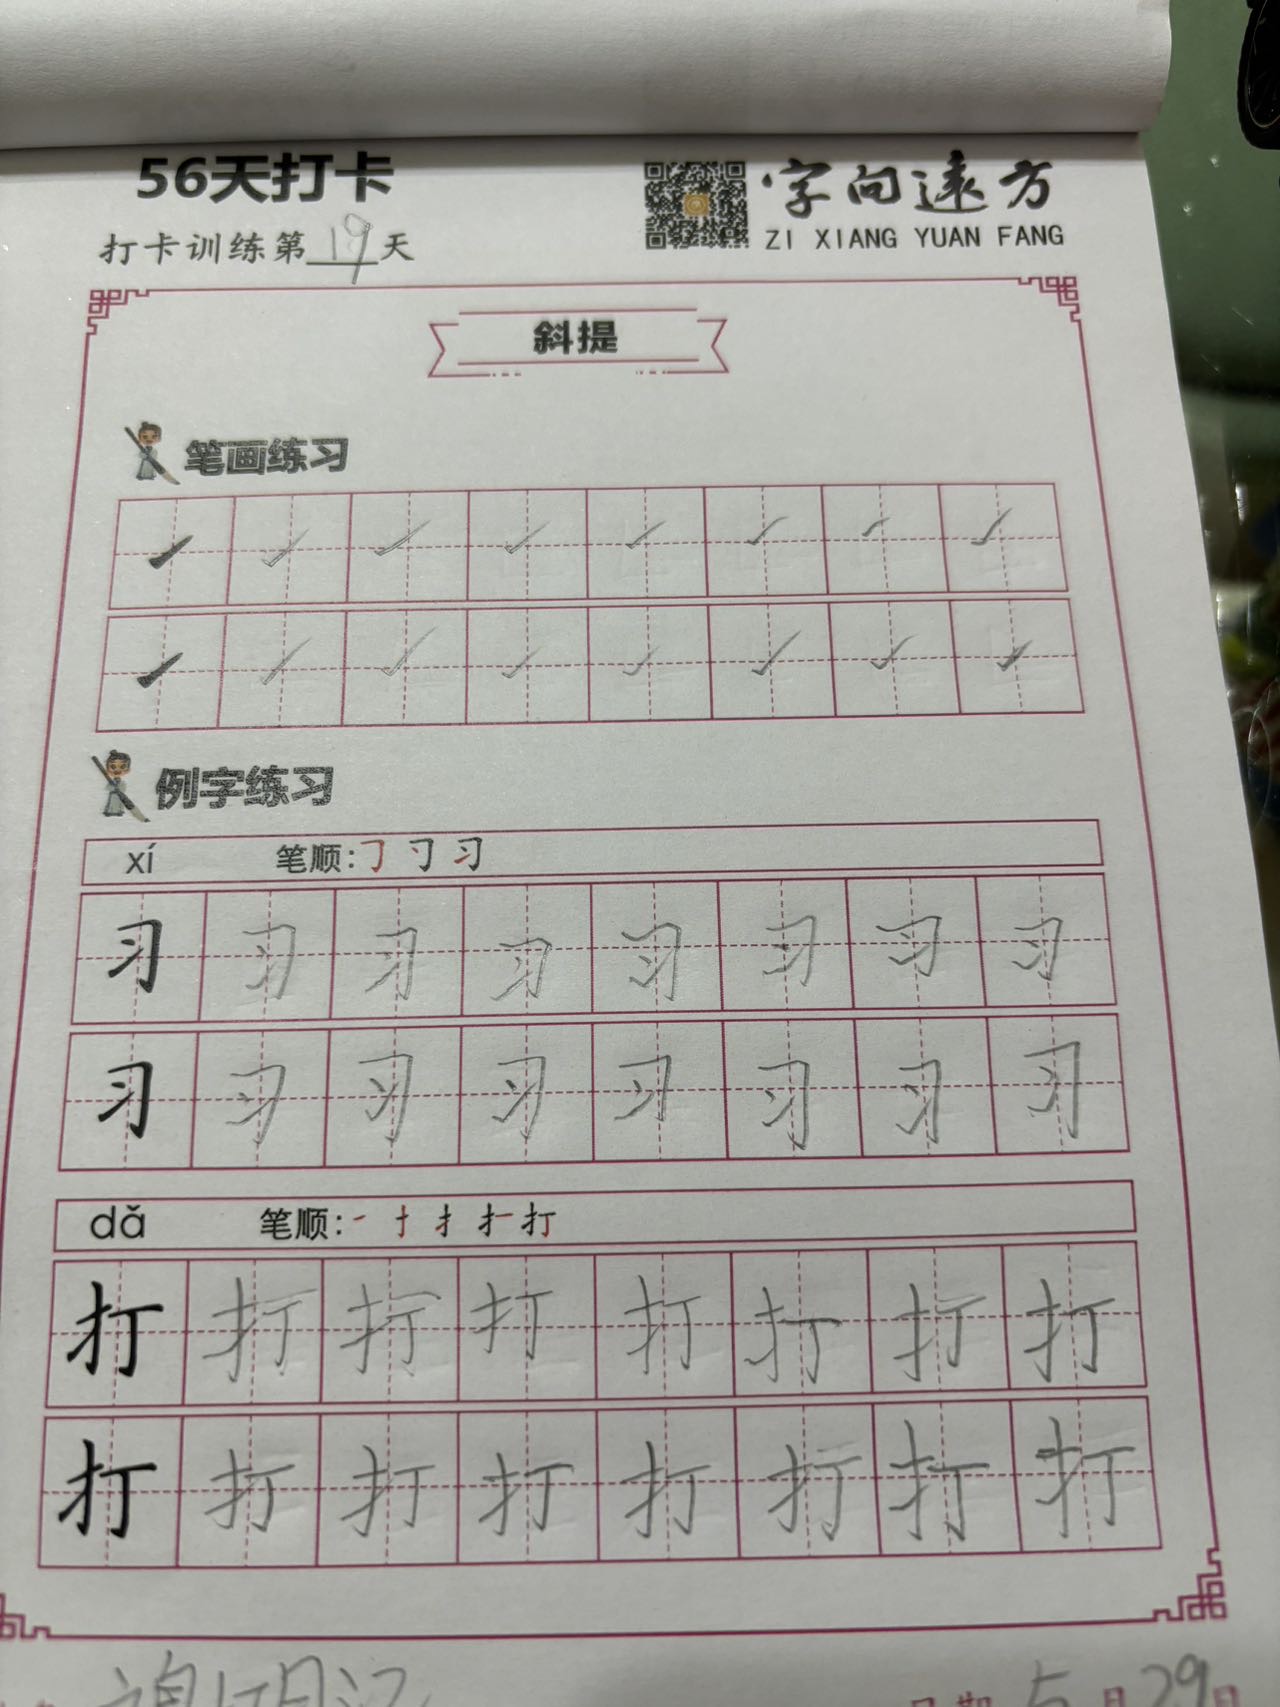 56天打卡
打卡训练第19天
字向遠方
ZI XIANG YUAN FANG
斜提
笔画练习
例字练习
xí 笔顺:㇆ 习
习 习 习 习 习 习 习 习
习 习 习 习 习 习 习 习
dǎ 笔顺:一 十 扌 打
打 打 打 打 打 打 打 打
打 打 打 打 打 打 打 打
日期 5月29日